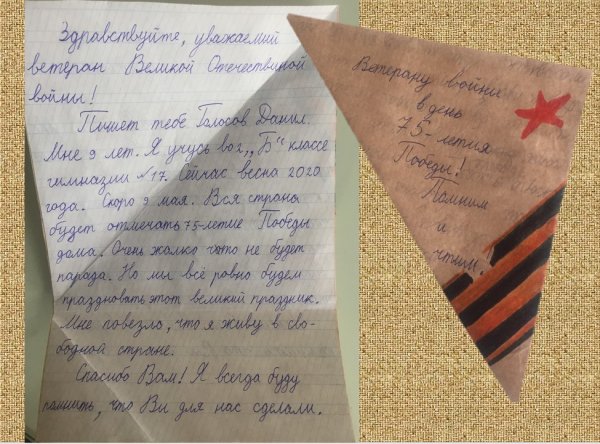 Здравствуйте, уважаемый
ветеран Великой Отечествиной
войны!
Пишет тебе Голосов Данил.
Мне 9 лет. Я учусь во 2 „Б" классе
гимназии №17. Сейчас весна 2020
года. Скоро 9 мая. Вся страна
будет отмечать 75-летие Победы
дома. Очень жалко чото не будет
парада. Но мы всё ровно будем
праздновать этот великий праздник.
Мне повезло, что я живу в сво-
бодной стране.
Спасибо Вам! Я всегда буду
помнить, что Вы для нас сделали.
Ветерану войны
в день
75-летия
Победы!
Помним
и
чтим!